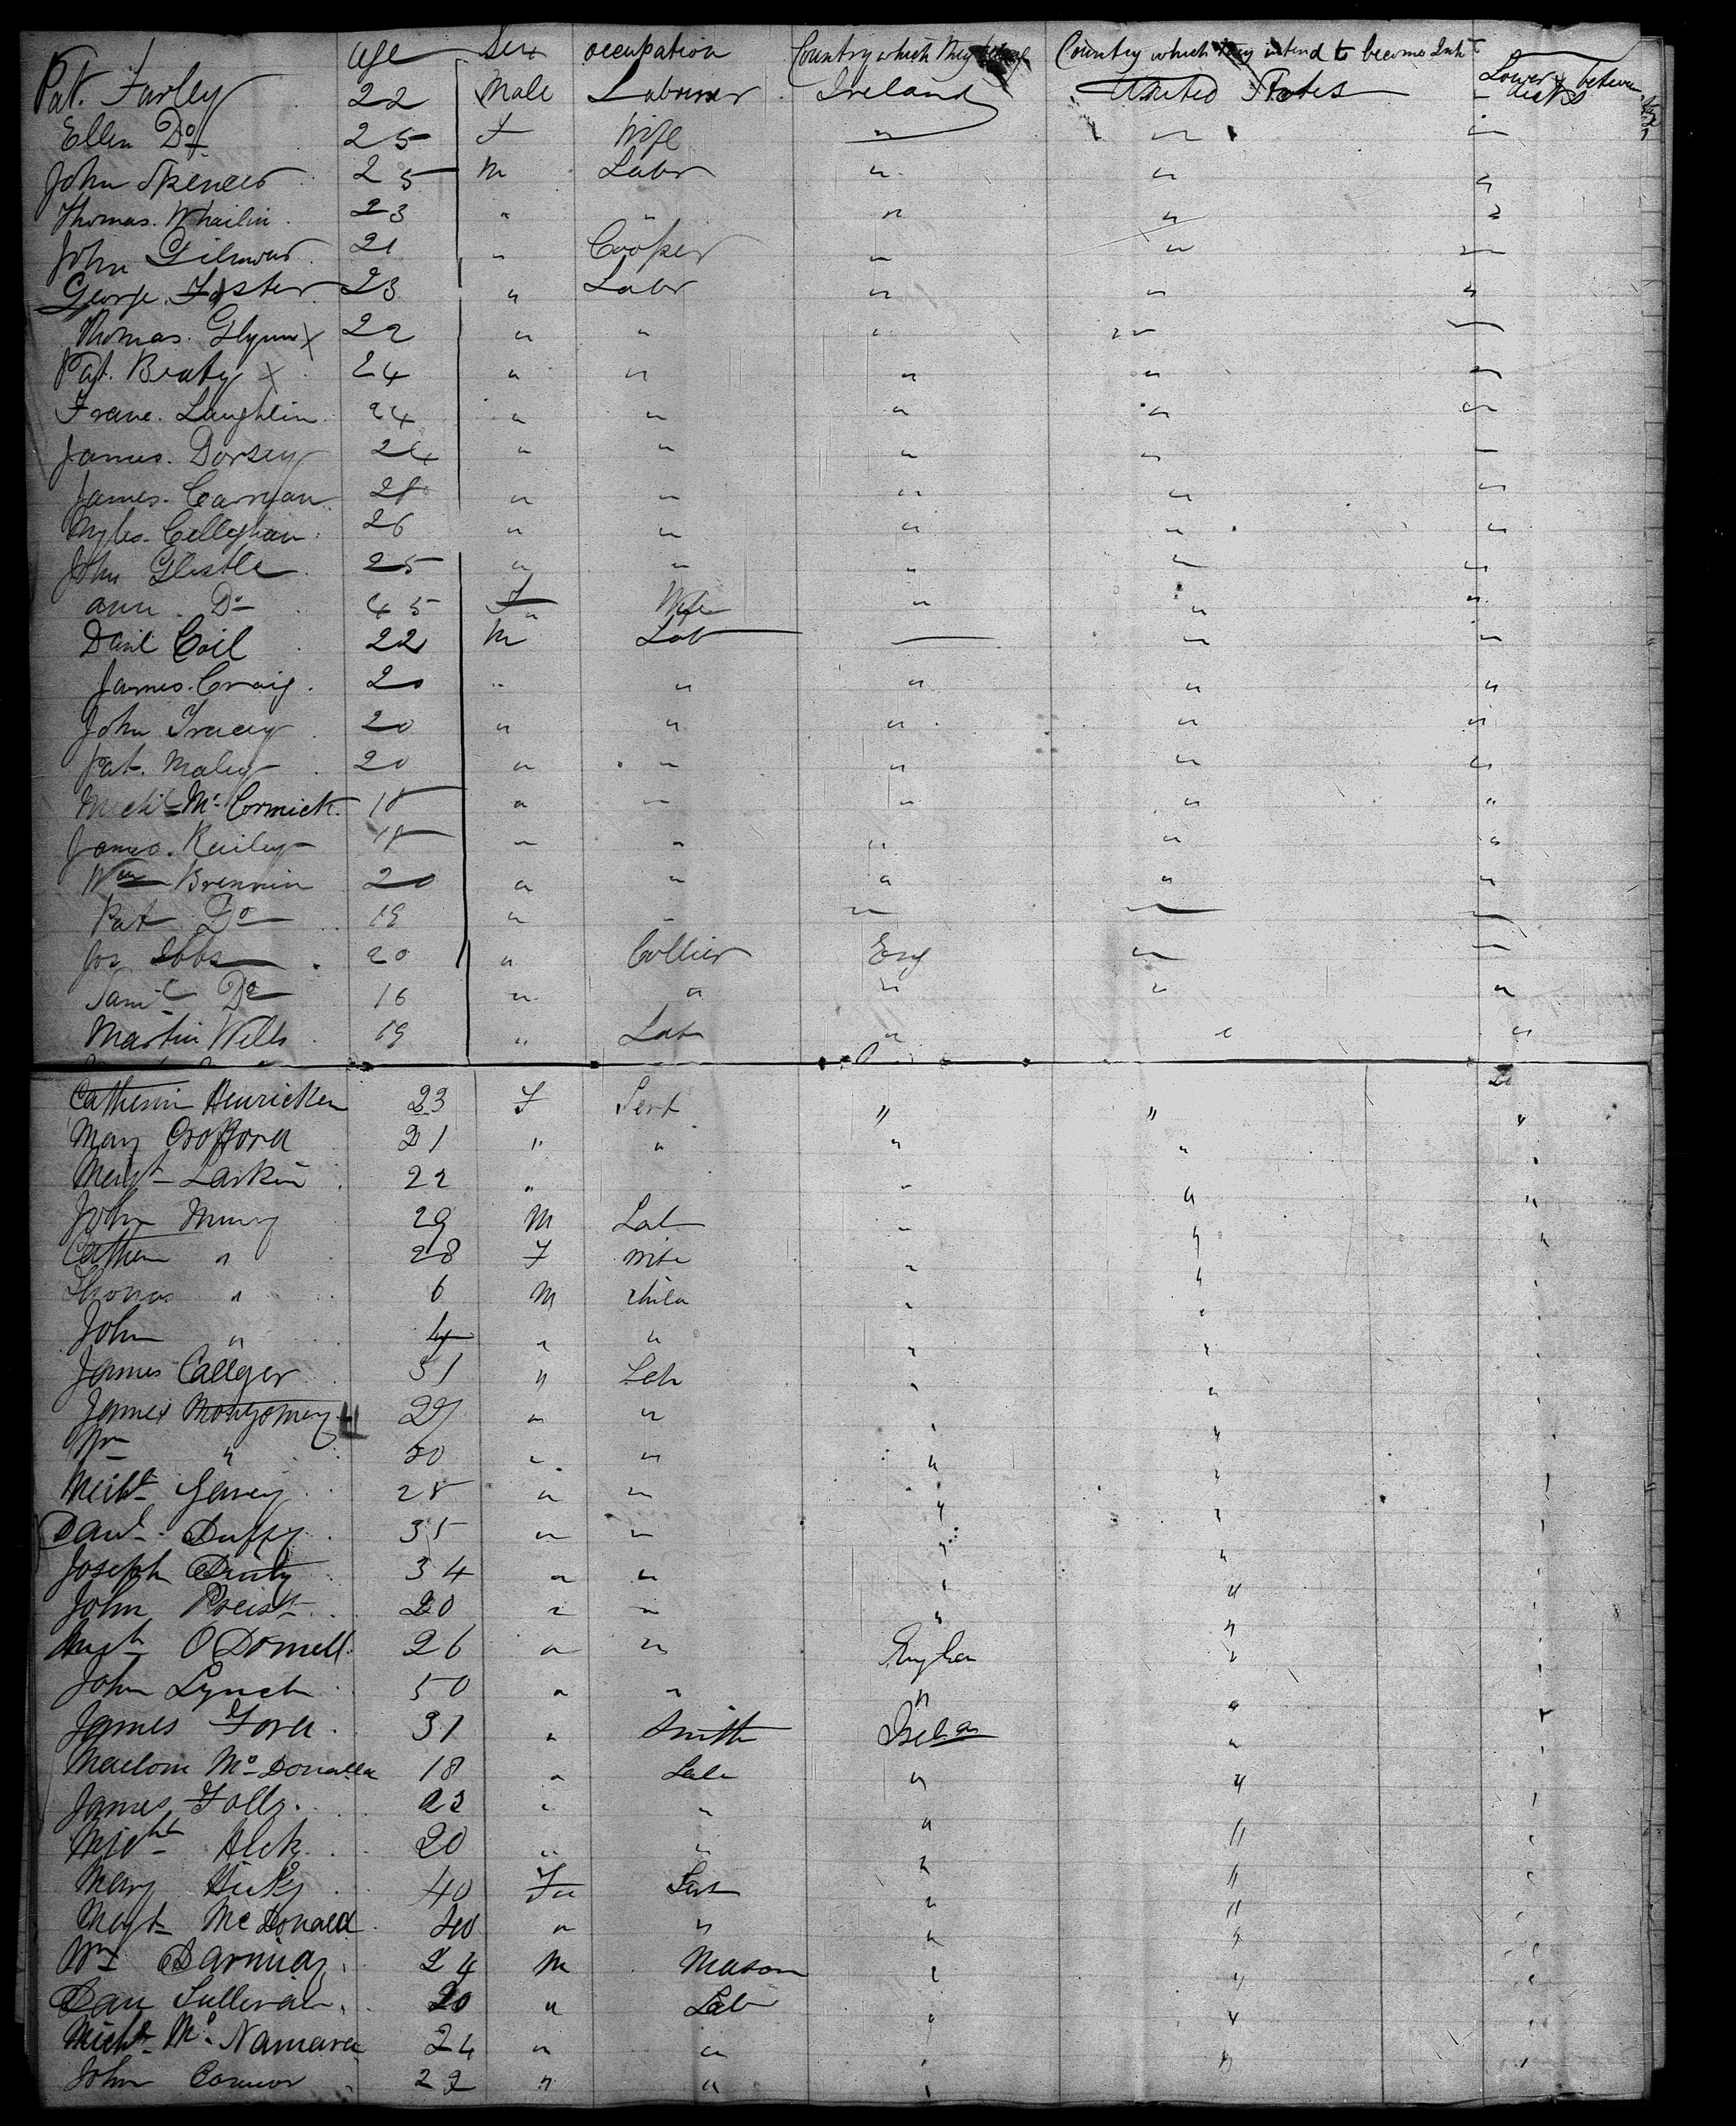 age Sex occupation Country which they belong Country which they intend to become Inht Lower & between decks
Pat. Farley 22 Male Labourer Ireland United States
Ellen Do 25 F Wife " " "
John Spencer 25 M Labr " " "
Thomas. Whailin 23 " " " " "
John Gilmour 21 " Cooper " " "
George. Foster 23 " Labr " " "
Thomas. Glynn x 22 " " " " "
Pat. Beaty x 24 " " " " "
Franc. Laughlin 24 " " " " "
James. Dorsey 24 " " " " "
James. Carrigan 28 " " " " "
Myles. Calleghan 26 " " " " "
John Glestle 25 " " " " "
ann. Do 45 F Wife " " "
Danl Coil 22 M Lab " " "
James. Craig. 20 " " " " "
John Tracey 20 " " " " "
Pat. Maley 20 " " " " "
Michl Mc Cormick 18 " " " " "
James. Reiley 18 " " " " "
Wm Brennin 20 " " " " "
Pat Do 19 " " " " "
Jos Ibbs 20 " Collier Eng " "
Saml Do 16 " " " " "
Martin Wells 19 " Lab " " "
Catherin Henricken 23 F Servt " " "
Mary 21 " " " " "
Margt Larkin 22 " " " "
John Murry 29 M Lab " " "
Cathern " 28 F Wife " " "
Thomas " 6 M child " " "
John " 4 " " " " "
James Callger 31 " Lab " " "
James Montgomery 27 " " " " "
Wm " 20 " " " " "
Michl Garvey 28 " " " " "
Danl. Duffy 35 " " " " "
Joseph 34 " " " " "
John Preist 20 " " " " "
Hugh O Donnell 26 " " Englan " "
John Lynch 50 " " " " "
James Ford 31 " Smith Irelan " "
McDonalla 18 " Lab " " "
James Folly. 23 " " " " "
Micht 20 " " " " "
Mary Hicky 40 Fe Servt " " "
Margt McDonald 40 " " " " "
Wm 24 M Mason " " "
Dan Sullivan 20 " Lab " " "
Michl Mc Namara 24 " " " " "
John Connor 22 " " " "